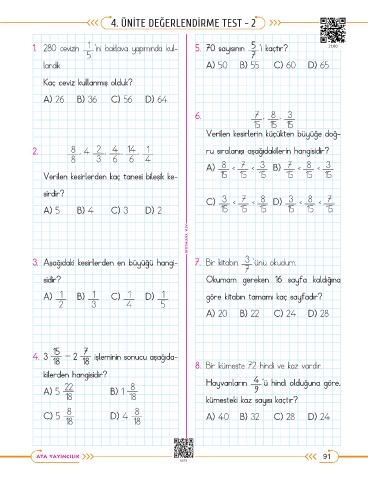 4. ÜNİTE DEĞERLENDİRME TEST - 2
1. 280 cevizin 1/5 'ini baklava yapımında kul-
landık.
Kaç ceviz kullanmış olduk?
A) 26 B) 36 C) 56 D) 64
2. 8/8, 4 2/3, 4/6, 14/6, 1/4
Verilen kesirlerden kaç tanesi bileşik ke-
sirdir?
A) 5 B) 4 C) 3 D) 2
3. Aşağıdaki kesirlerden en büyüğü hangi-
sidir?
A) 1/2 B) 1/3 C) 1/4 D) 1/5
4. 3 15/18 - 2 7/18 işleminin sonucu aşağıda-
kilerden hangisidir?
A) 5 22/18 B) 1 8/18
C) 5 8/18 D) 4 8/18
ATA YAYINCILIK
5. 70 sayısının 5/7 'i kaçtır?
A) 50 B) 55 C) 60 D) 65
6. 7/15, 8/15, 3/15
Verilen kesirlerin küçükten büyüğe doğ-
ru sıralanışı aşağıdakilerin hangisidir?
A) 8/15 < 7/15 < 3/15 B) 7/15 < 8/15 < 3/15
C) 3/15 < 7/15 < 8/15 D) 3/15 < 8/15 < 7/15
7. Bir kitabın 3/7 'ünü okudum.
Okumam gereken 16 sayfa kaldığına
göre kitabın tamamı kaç sayfadır?
A) 20 B) 22 C) 24 D) 28
8. Bir kümeste 72 hindi ve kaz vardır.
Hayvanların 4/9 'ü hindi olduğuna göre,
kümesteki kaz sayısı kaçtır?
A) 40 B) 32 C) 28 D) 24
91